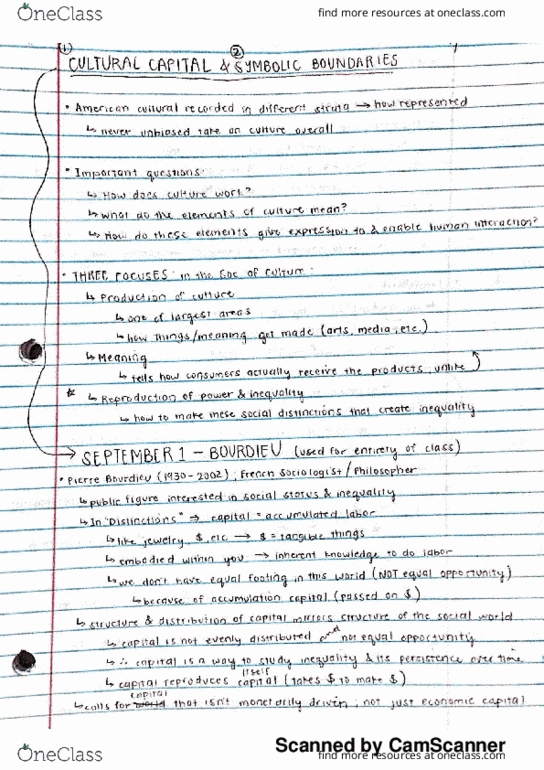 OneClass
find more resources at oneclass.com
(1) (2)
CULTURAL CAPITAL & SYMBOLIC BOUNDARIES
• American cultural recorded in different strata → how represented
↳ never unbiased take on culture overall
• Important questions:
↳ How does culture work?
↳ What do the elements of culture mean?
↳ How do these elements give expression to & enable human interaction?
• THREE FOCUSES in the Soc of Culture:
↳ Production of culture
↳ one of largest areas
↳ how things/meaning get made (arts, media, etc.)
↳ Meaning
↳ tells how consumers actually receive the products, unlike
* ↳ Reproduction of power & inequality
↳ how to make these social distinctions that create inequality
SEPTEMBER 1 - BOURDIEU (used for entirety of class)
• Pierre Bourdieu (1930-2002); French Sociologist/Philosopher
↳ public figure interested in social status & inequality
↳ In "Distinctions" → capital = accumulated labor
↳ like jewelry, $, etc → $ = tangible things
↳ embodied within you → inherent knowledge to do labor
↳ we don't have equal footing in this world (NOT equal opportunity)
↳ because of accumulation capital (passed on $)
↳ structure & distribution of capital mirrors structure of the social world
↳ capital is not evenly distributed not equal opportunity
↳ ∴ capital is a way to study inequality & its persistence over time
↳ capital reproduces capital itself (takes $ to make $)
↳ calls for capital that isn't monetarily driven; not just economic capital
Scanned by CamScanner
OneClass
find more resources at oneclass.com